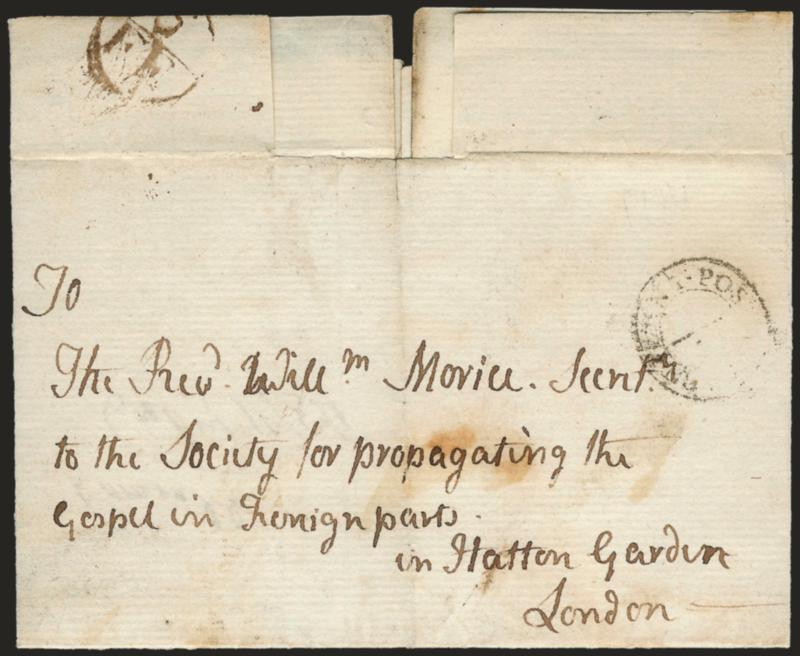 To
The Revd. Willm Morice. Secrt.
to the Society for propagating the
Gospel in Foreign parts.
in Hatton Garden
London